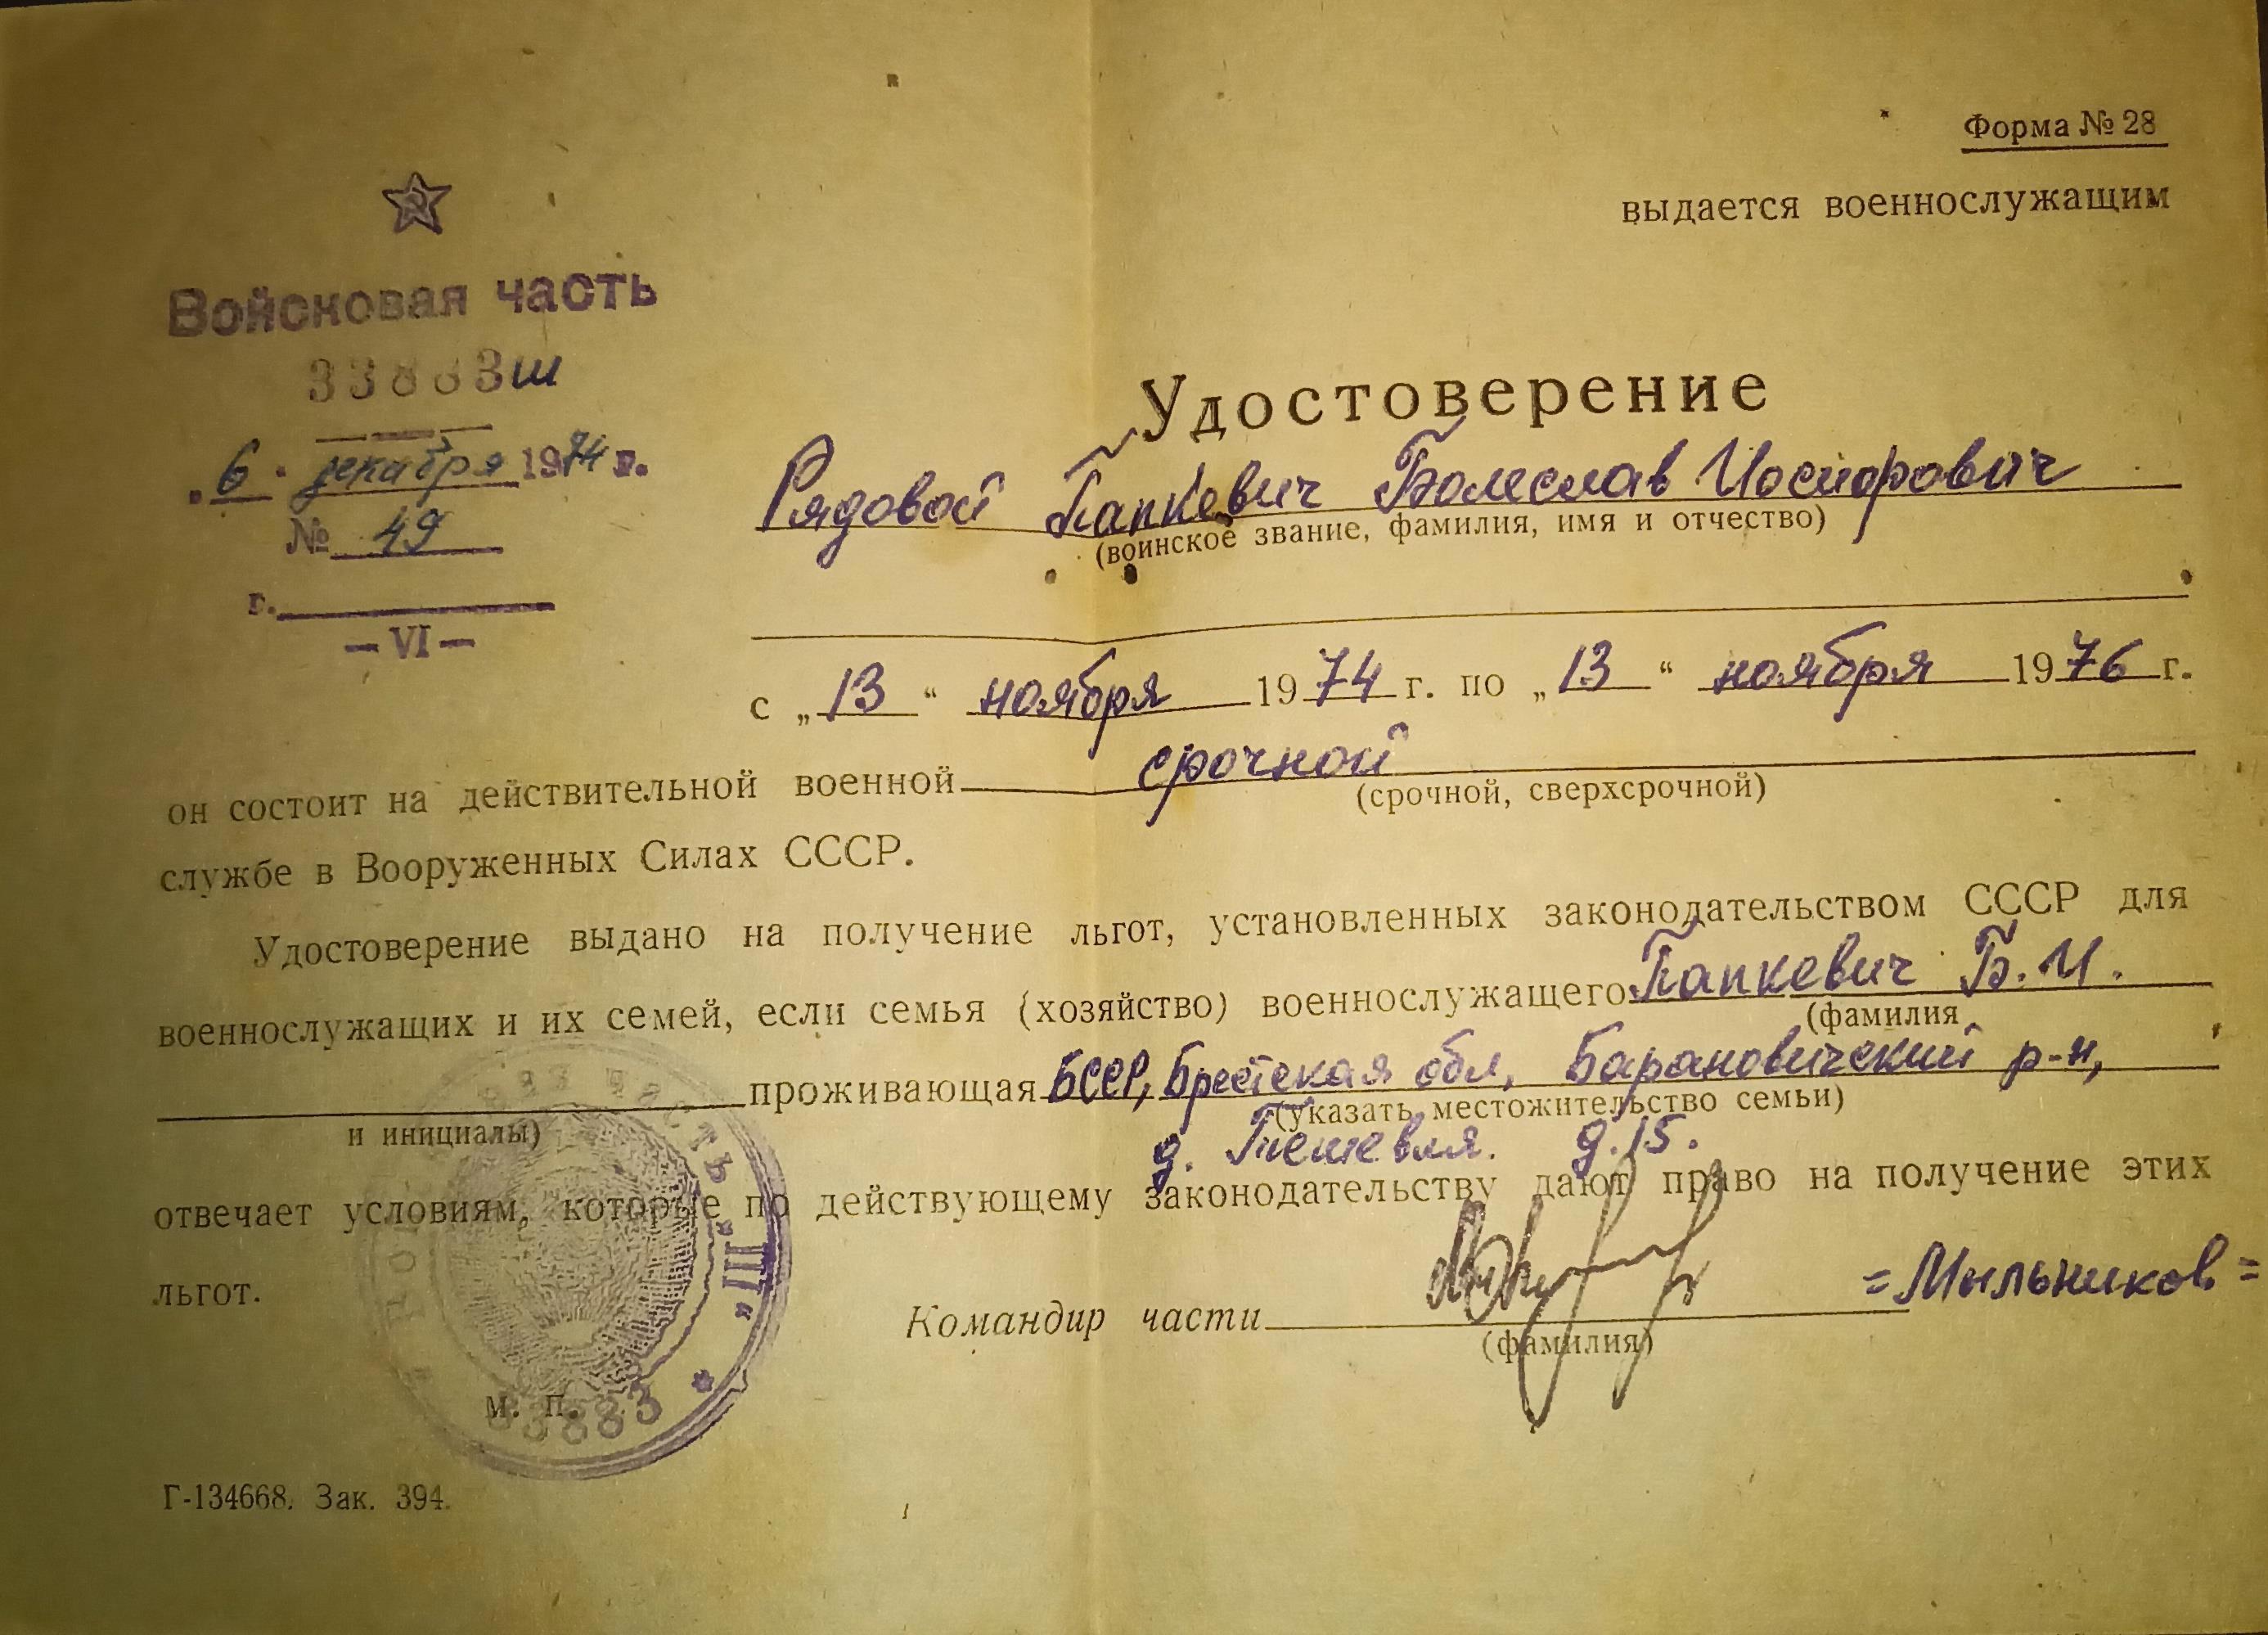 Форма № 28
выдается военнослужащим
Войсковая часть
33883 ш
„6“ декабря 1974 г.
№ 49
г.
— VI —
Удостоверение
Рядовой Папкевич Болеслав Иосифович
(воинское звание, фамилия, имя и отчество)
с „13“ ноября 1974 г. по „13“ ноября 1976 г.
он состоит на действительной военной срочной
(срочной, сверхсрочной)
службе в Вооруженных Силах СССР.
Удостоверение выдано на получение льгот, установленных законодательством СССР для
военнослужащих и их семей, если семья (хозяйство) военнослужащего Папкевич Б. И.
(фамилия
проживающая БССР, Брестская обл, Барановичский р-н,
и инициалы)
(указать местожительство семьи)
д. Тешевля. д. 15.
отвечает условиям, которые по действующему законодательству дают право на получение этих
льгот.
Командир части =Мыльников=
(фамилия)
м. п.
„III“ * 33883
Г-134668. Зак. 394.